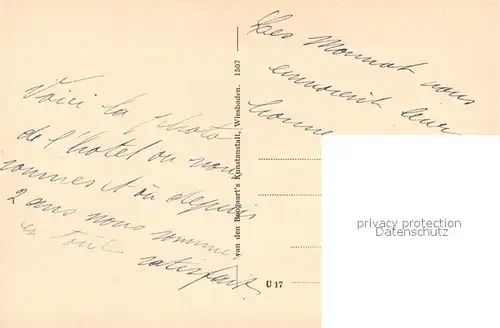 Voici la photo
de l'hotel ou nous
sommes et où depuis
2 ans nous sommes
en tout
satisfait.
van den Bergaart's Kunstanstalt, Wiesbaden. 1507
Les Monnat vous
envoient leur
bonne
U 17
privacy protection
Datenschutz